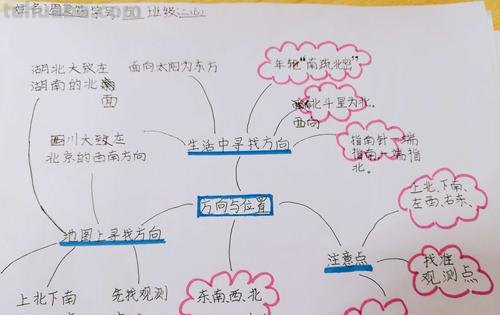 班级:二(6)
湖北大致在
湖南的北
面
面向太阳为东方
年轮"南疏北密"
北斗星为北。
西向
四川大致在
北京的西南方向
生活中寻找方向
指南针一端
指南,一端指
北。
上北、下南、
左西、右东、
方向与位置
地图上寻找方向
注意点
找准
观测点
上北下南
先找观测
东、南、西、北